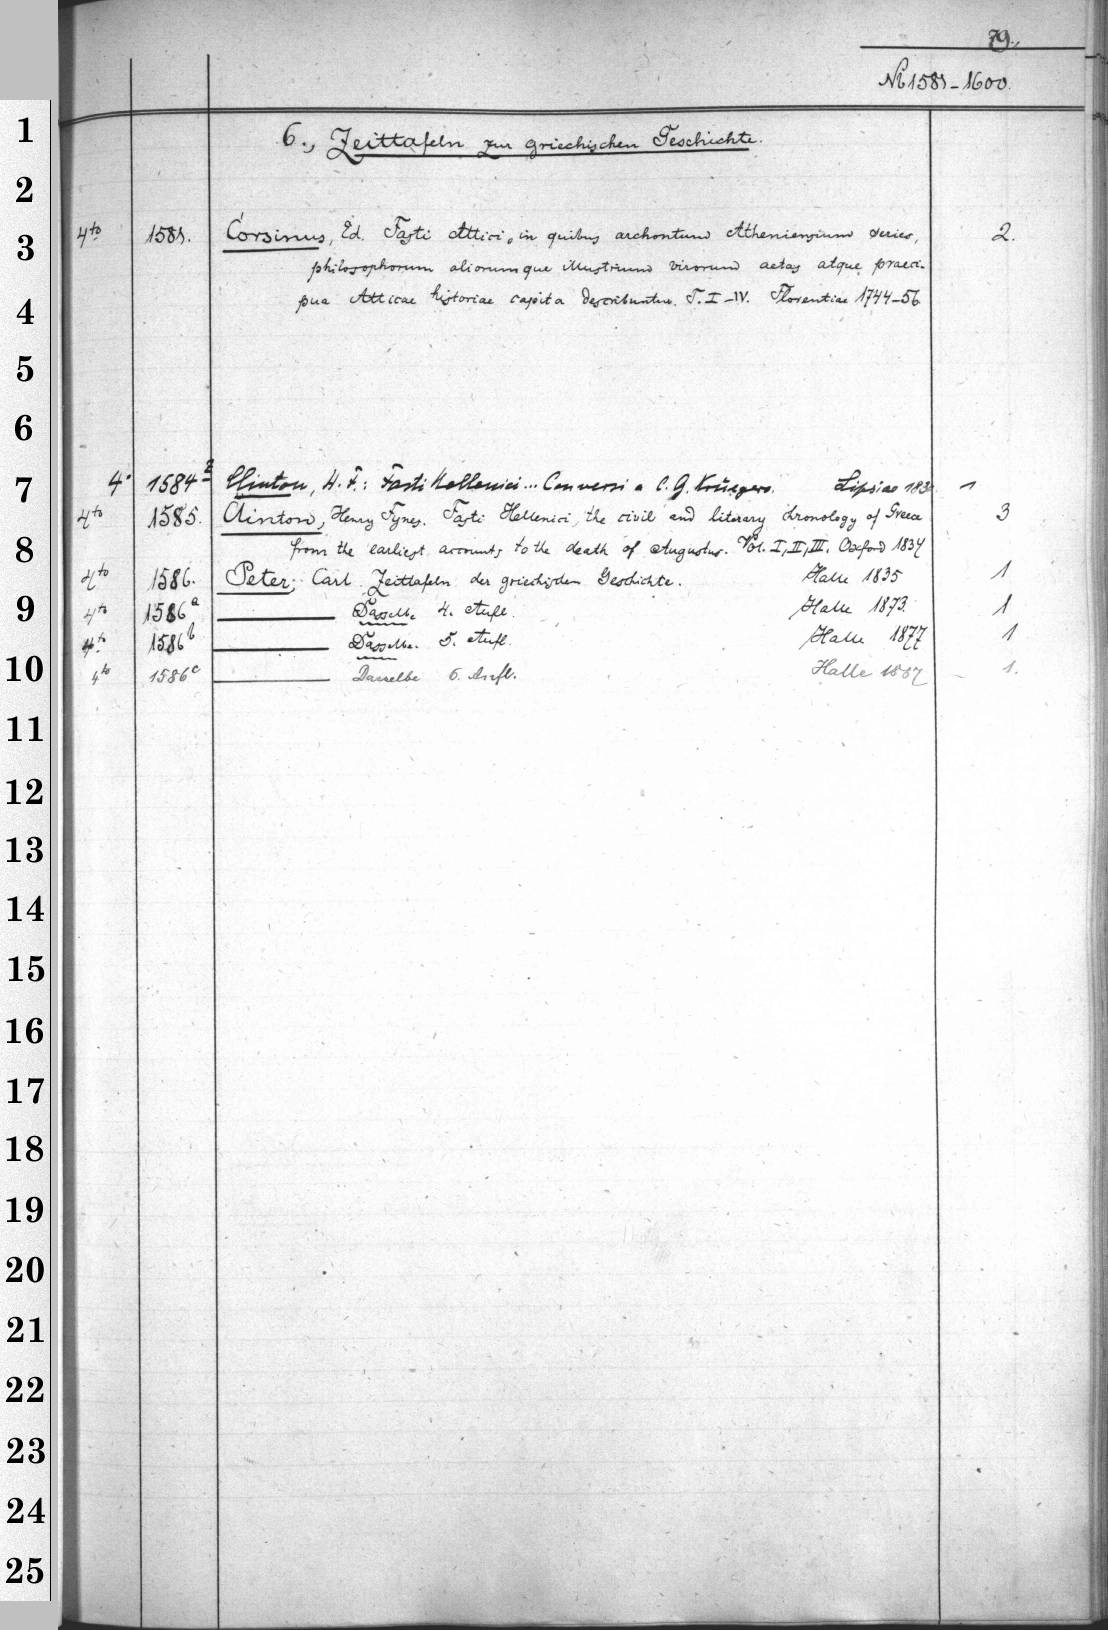 79.
No 1581-1600.
6., Zeittafeln zur griechischen Geschichte.
4to 1581. Corsinus, Ed. Fasti Attici, in quibus archontum Atheniensium series, 2.
philosophorum aliorumque illustrium virorum aetas atque praeci-
pua Atticae historiae capita describuntur. T. I-IV. Florentiae 1744-56
4° 1584 z Clinton, H. F.: Fasti Hellenici... Conversi a C. G. Kruegero. Lipsiae 1830 1
4to 1585. Clinton, Henry Fynes. Fasti Hellenici, the civil and literary chronology of Greece 3
from the earliest accounts to the death of Augustus. Vol. I, II, III. Oxford 1834
4to 1586. Peter, Carl. Zeittafeln der griechischen Geschichte. Halle 1835 1
4to 1586a Dasselbe 4. Aufl. Halle 1873 1
4to 1586b Dasselbe. 5. Aufl. Halle 1877 1
4to 1586c Dasselbe 6. Aufl. Halle 1887 1.
1
2
3
4
5
6
7
8
9
10
11
12
13
14
15
16
17
18
19
20
21
22
23
24
25